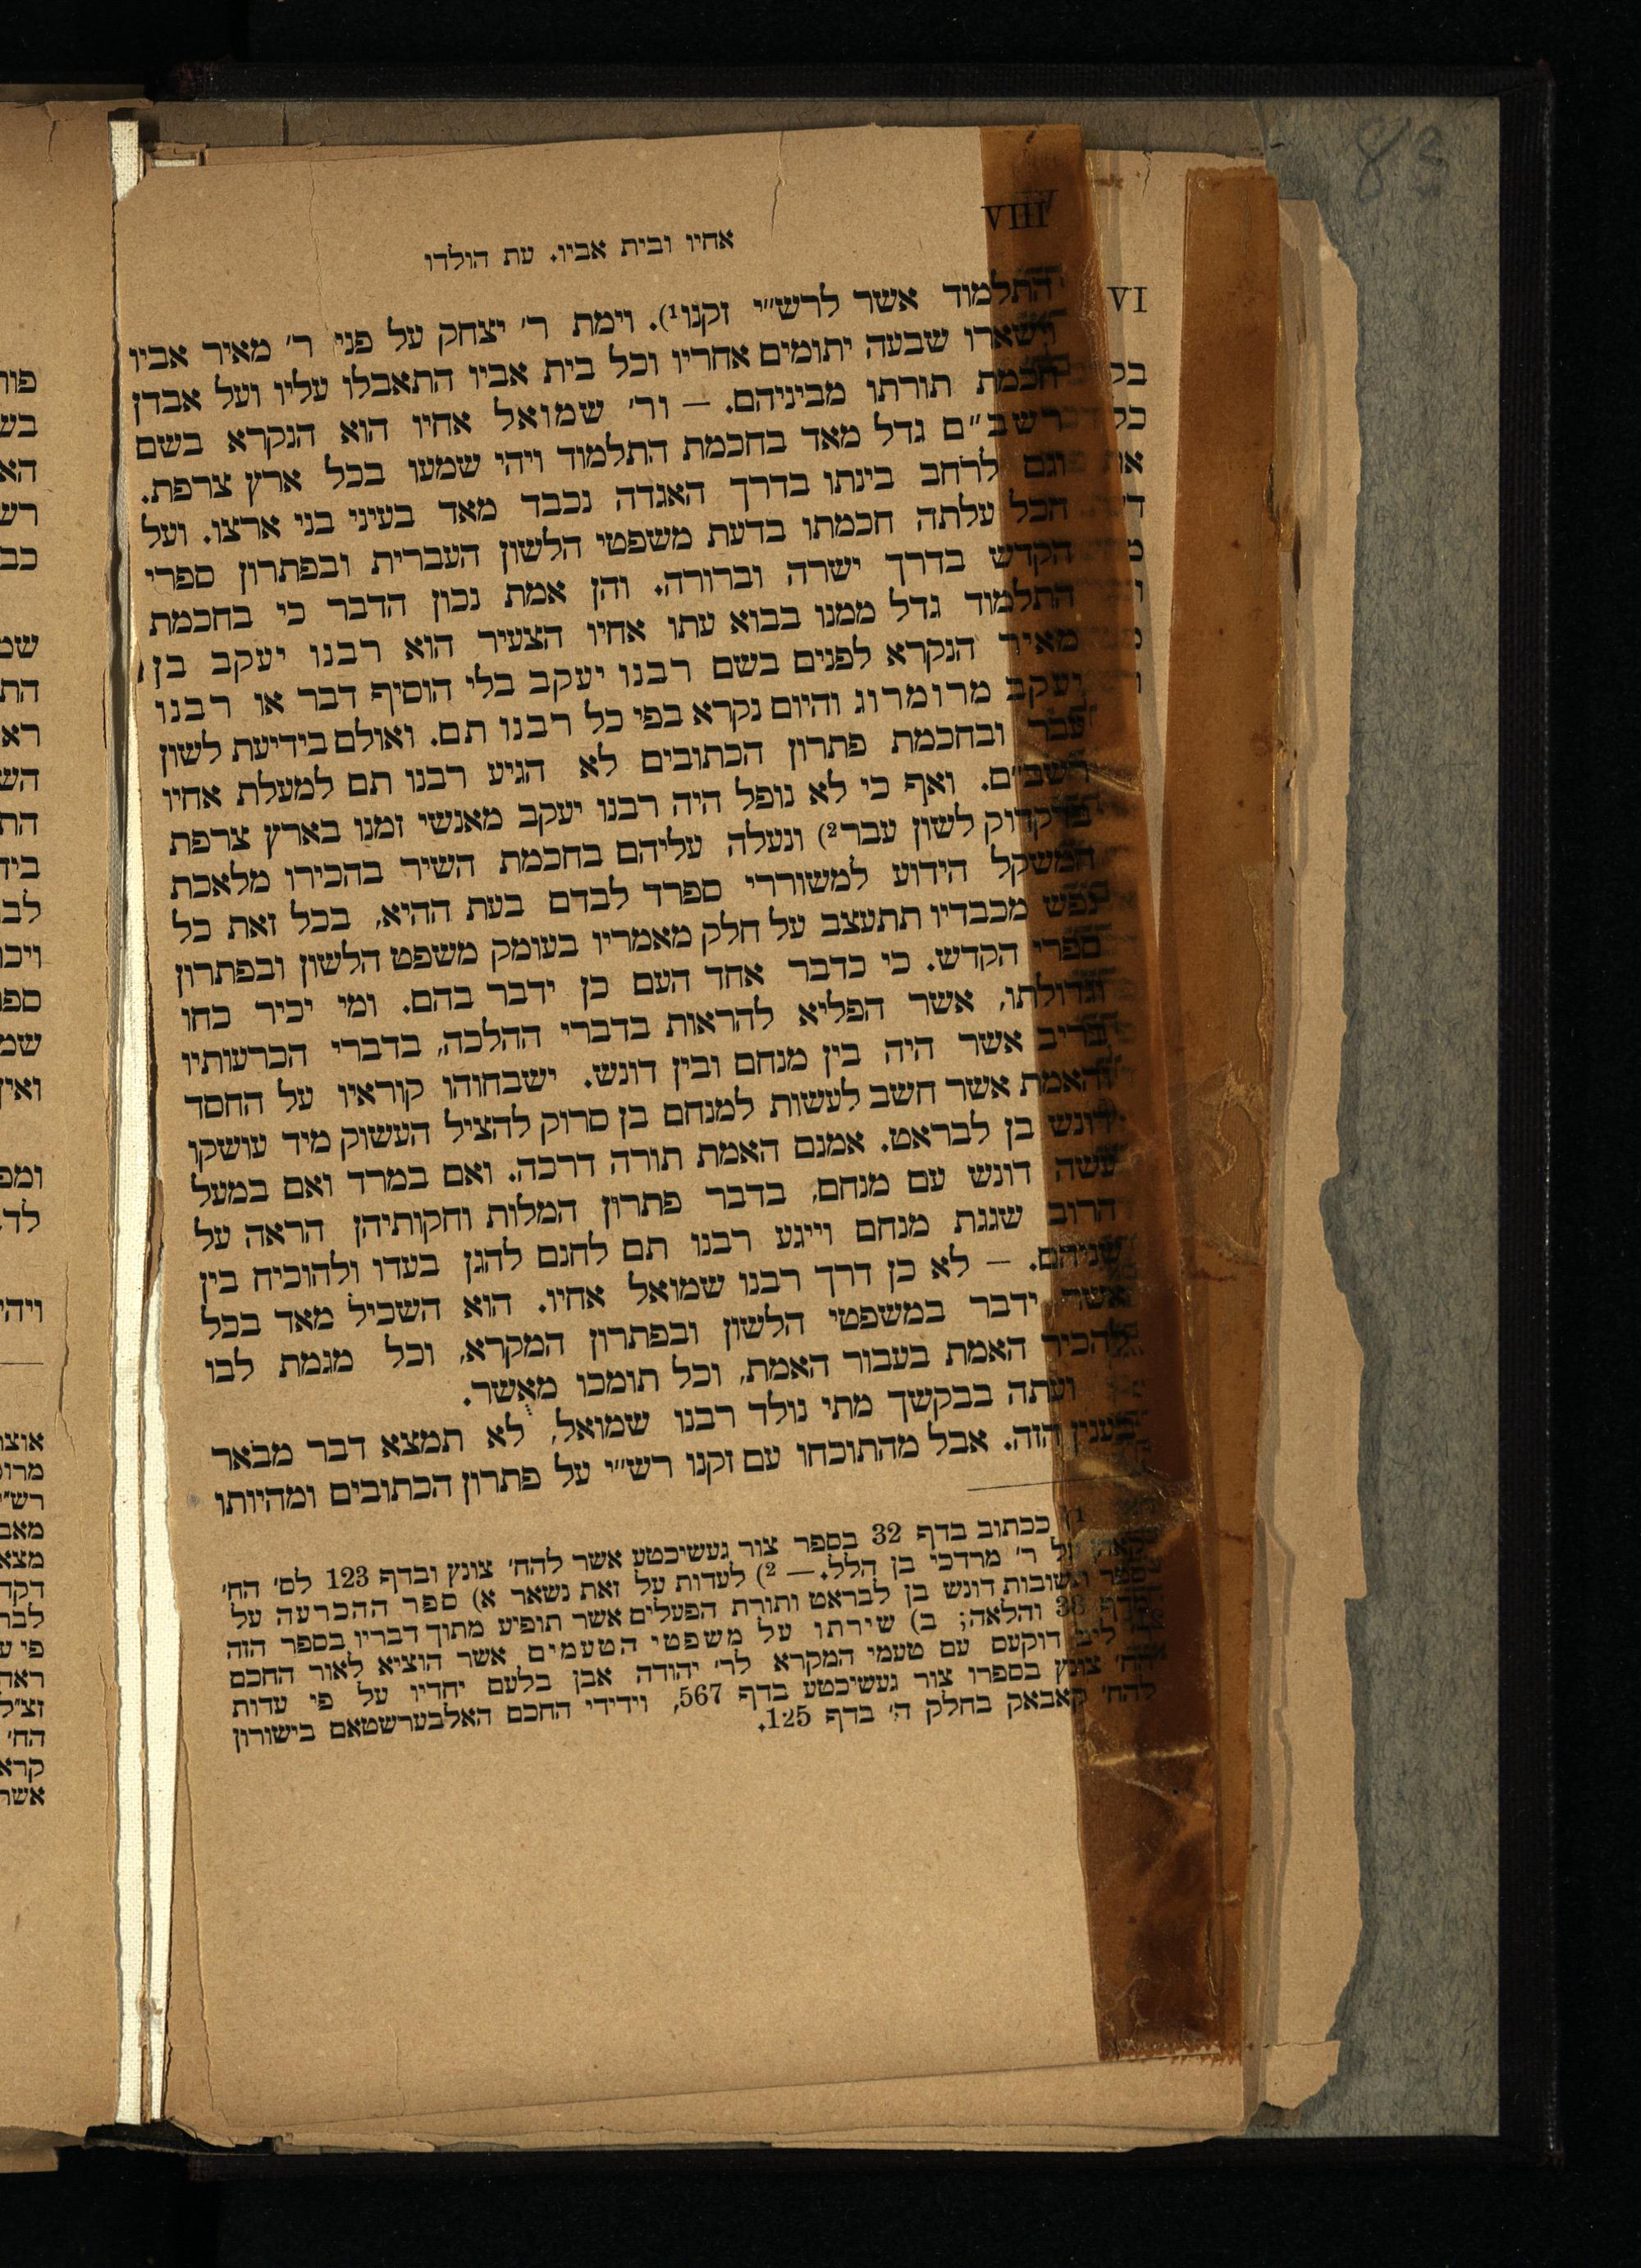 83
VIII
אחיו ובית אביו. עת הולדו
התלמוד אשר לרש״י זקנו¹). וימת ר׳ יצחק על פני ר׳ מאיר אביו
וישארו שבעה יתומים אחריו וכל בית אביו התאבלו עליו ועל אבדן
חכמת תורתו מביניהם. — ור׳ שמואל אחיו הוא הנקרא בשם
רשב״ם גדל מאד בחכמת התלמוד ויהי שמעו בכל ארץ צרפת.
וגם לרחב בינתו בדרך האגדה נכבד מאד בעיני בני ארצו. ועל
הכל עלתה חכמתו בדעת משפטי הלשון העברית ובפתרון ספרי
הקדש בדרך ישרה וברורה. והן אמת נכון הדבר כי בחכמת
התלמוד גדל ממנו בבוא עתו אחיו הצעיר הוא רבנו יעקב בן
מאיר הנקרא לפנים בשם רבנו יעקב בלי הוסיף דבר או רבנו
יעקב מרומרוג והיום נקרא בפי כל רבנו תם. ואולם בידיעת לשון
עבר ובחכמת פתרון הכתובים לא הגיע רבנו תם למעלת אחיו
רשב״ם. ואף כי לא נופל היה רבנו יעקב מאנשי זמנו בארץ צרפת
בדקדוק לשון עבר²) ונעלה עליהם בחכמת השיר בהכירו מלאכת
המשקל הידוע למשוררי ספרד לבדם בעת ההיא, בכל זאת כל
נפש מכבדיו תתעצב על חלק מאמריו בעומק משפט הלשון ובפתרון
ספרי הקדש. כי כדבר אחד העם כן ידבר בהם. ומי יכיר כחו
וגדולתו, אשר הפליא להראות בדברי ההלכה, בדברי הכרעותיו
בריב אשר היה בין מנחם ובין דונש. ישבחוהו קוראיו על החסד
והאמת אשר חשב לעשות למנחם בן סרוק להציל העשוק מיד עושקו
דונש בן לבראט. אמנם האמת תורה דרכה. ואם במרד ואם במעל
עשה דונש עם מנחם, בדבר פתרון המלות וחקותיהן הראה על
הרוב שגגת מנחם וייגע רבנו תם לחנם להגן בעדו ולהוכיח בין
שניהם. — לא כן דרך רבנו שמואל אחיו. הוא השכיל מאד בכל
אשר ידבר במשפטי הלשון ובפתרון המקרא, וכל מגמת לבו
להכיר האמת בעבור האמת, וכל תומכו מאֻשר.
ועתה בבקשך מתי נולד רבנו שמואל, לא תמצא דבר מבאר
בענין הזה. אבל מהתוכחו עם זקנו רש״י על פתרון הכתובים ומהיותו
1) ככתוב בדף 32 בספר צור געשיכטע אשר להח׳ צונץ ובדף 123 לס׳ הח׳
על ר׳ מרדכי בן הלל. — ²) לעדות על זאת נשאר א) ספר ההכרעה על
ספר תשובות דונש בן לבראט ותורת הפעלים אשר תופיע מתוך דבריו בספר הזה
בדף 38 והלאה; ב) שירתו על משפטי הטעמים אשר הוציא לאור החכם
ליב דוקעם עם טעמי המקרא לר׳ יהודה אבן בלעם יחדיו על פי עדות
הח׳ צונץ בספרו צור געשיכטע בדף 567, וידידי החכם האלבערשטאם בישורון
להח׳ קאבאק בחלק ה׳ בדף 125.
VI
בק
כל
פור
בש
הא
רש
כב
שמ
הת
רא
הש
הת
ביד
לב
ויכו
ספ
שמ
ואין
ומפ
לד
ויהי
אוצו
מרוו
רש״י
מאב
מצא
דקד
לבר
פי ע
ראה
זצ״ל
הח׳
קרא
אשר